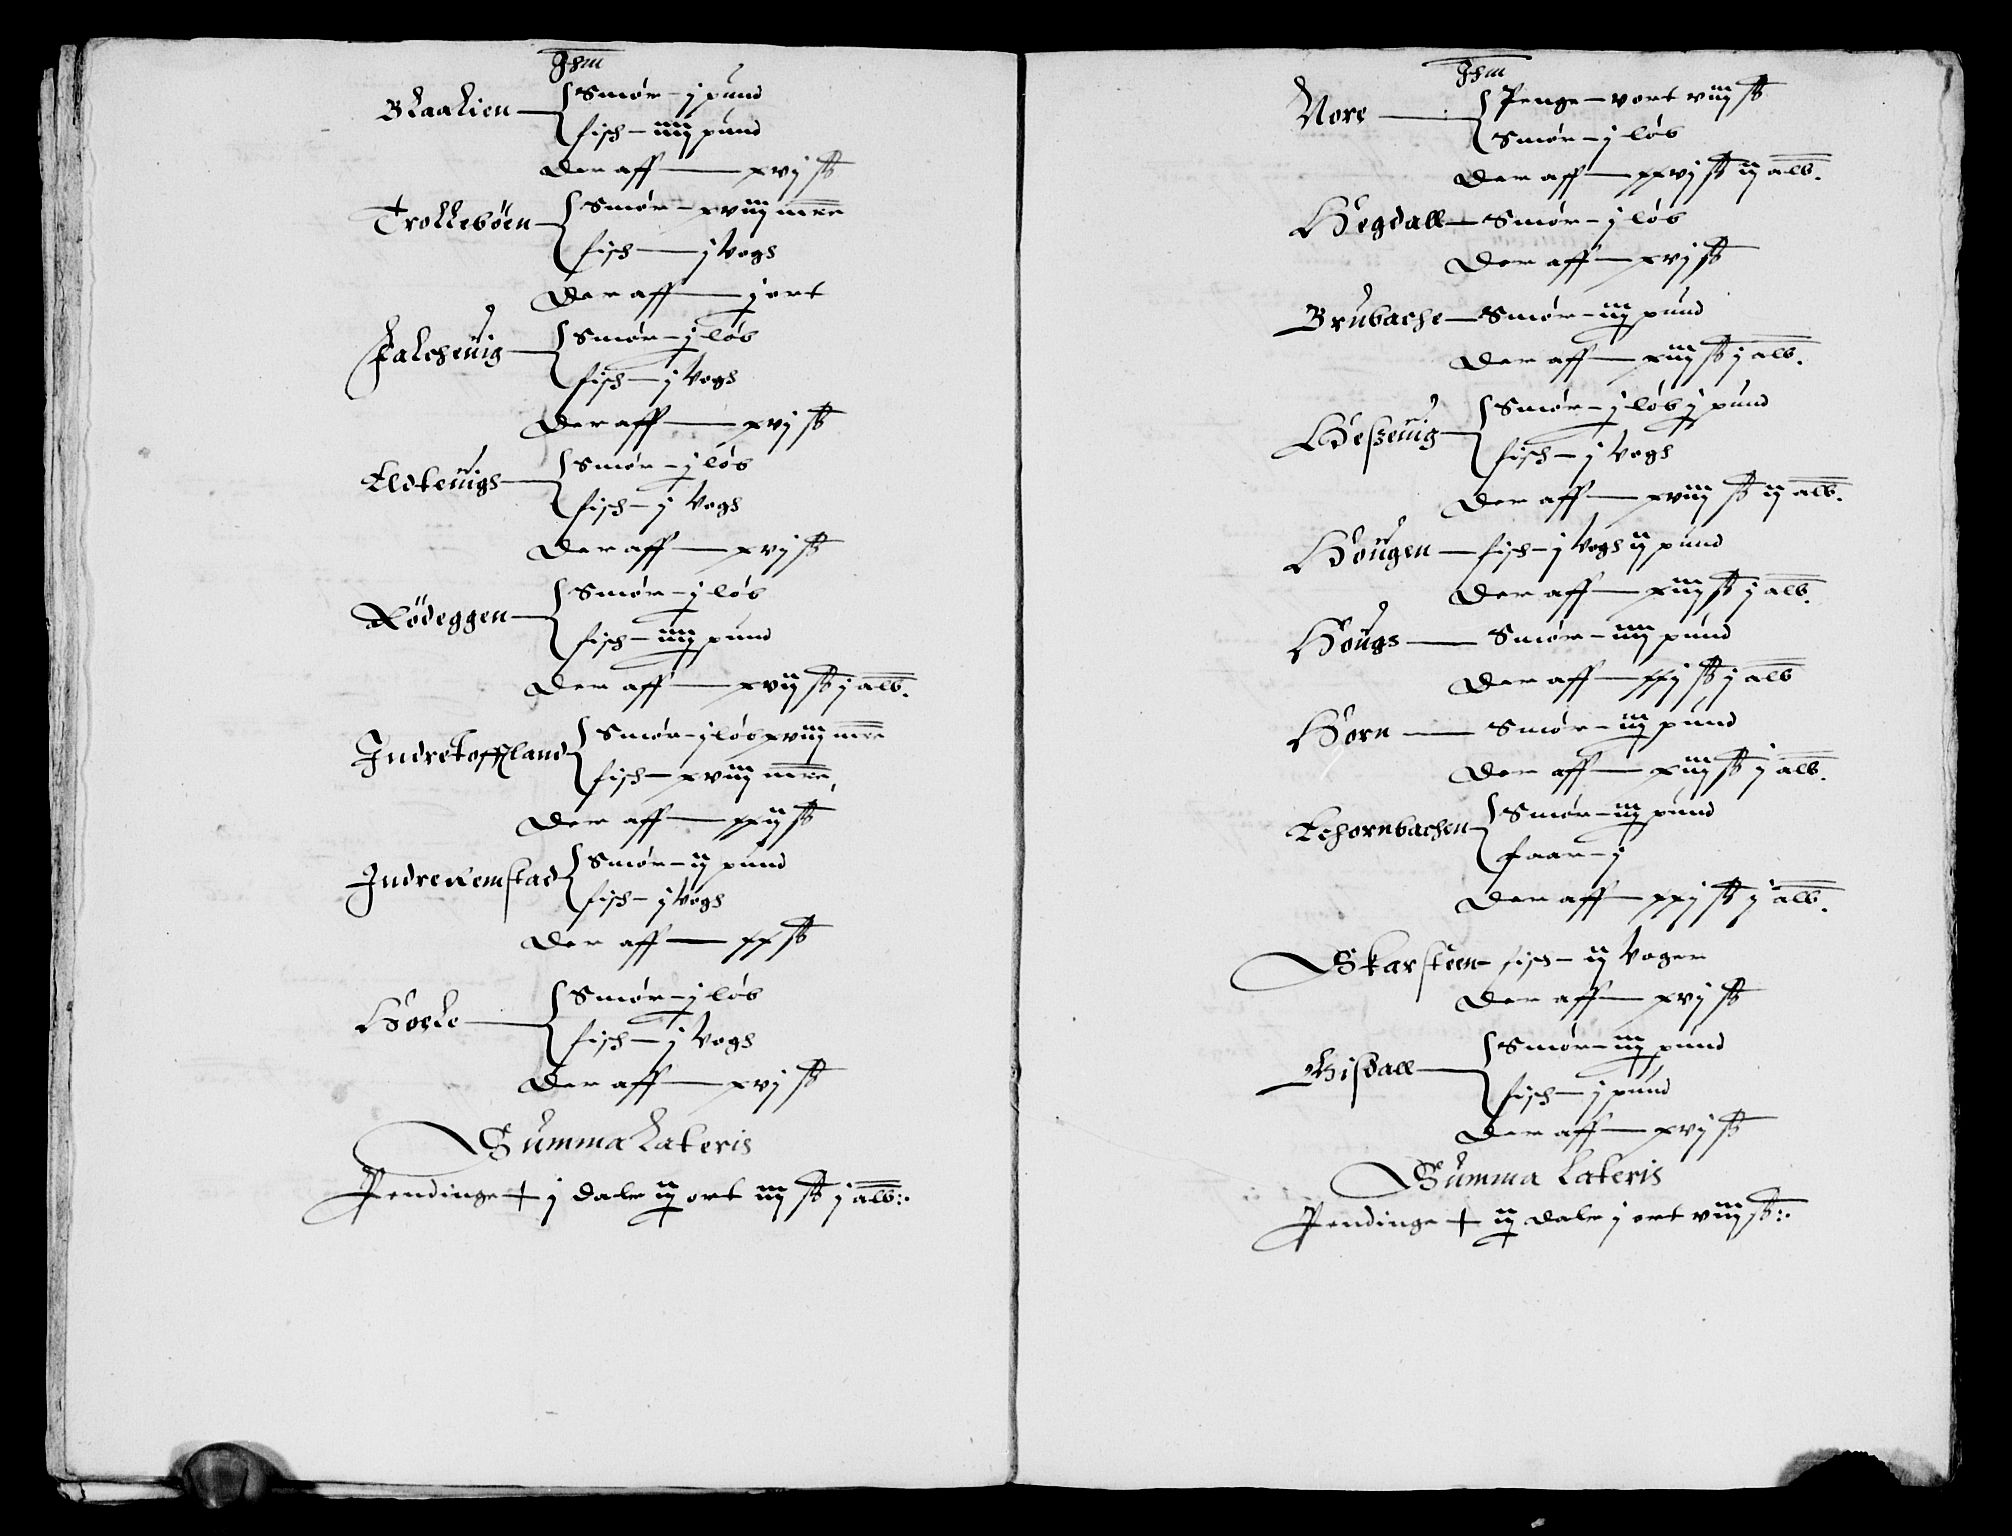 Jhm
Blaalien — Smør — j pund
fisch — iiij pund
Der aff — xvj ß
Trollebøen — Smør — xviij mrr
fisch — j Vogh
Der aff — j ort
Falcheuig — Smør — j løb
fisch — j Vogh
Der aff — xvj ß
Eldteuigh — Smør — j løb
fisch — j Vogh
Der aff — xvj ß
Rödeggen — Smør — j løb
fisch — iiij pund
Der aff — xvij ß j alb.
Indretoffland Smør — j løb xviij mrr
fisch — xviij mrr,
Der aff — xxij ß
Indre Remstad Smør — ij pund
fisch — j Vogh
Der aff — xx ß
Hoele — Smør — j løb
fisch — j Vogh
Der aff — xvj ß
Summa Lateris
Pendinge + j dalr iij ort iiij ß j alb:.
Jhm
Nore — Penge — vort viij ß
Smør — j løb
Der aff — xxvj ß ij alb.
Hegdall — Smør — j løb
Der aff — xvj ß
Brubache — Smør — iij pund
Der aff — xiij ß j alb.
Heßeuig — Smør — j løb j pund
fisch — j Vogh
Der aff — xviij ß ij alb.
Hougen — fisch — j Vogh ij pund
Der aff — xiij ß j alb.
Hougs — Smør — iiij pund
Der aff — xxj ß j alb
Horn — Smør — iij pund
Der aff — xiij ß j alb.
Tchornbachen Smør — iij pund
faar — j
Der aff — xxj ß j alb.
Skarsteen — fisch — ij Voger
Der aff — xvj ß
Gisdall — Smør — iij pund
fisch — j pund
Der aff — xvj ß
Summa Lateris
Pendinge + iij dalr j ort viij ß:.